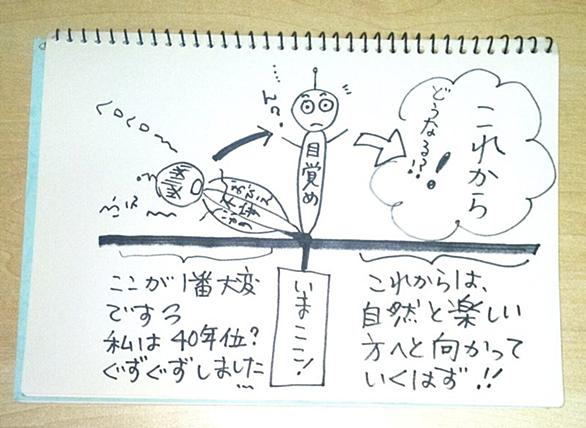 ん?
これから
どうなるる?!!
目覚め
ここが1番大変
ですね
私は40年位?
ぐずぐずしました
いまココ!
これからは、
自然と楽しい
方へと向かって
いくはず!!